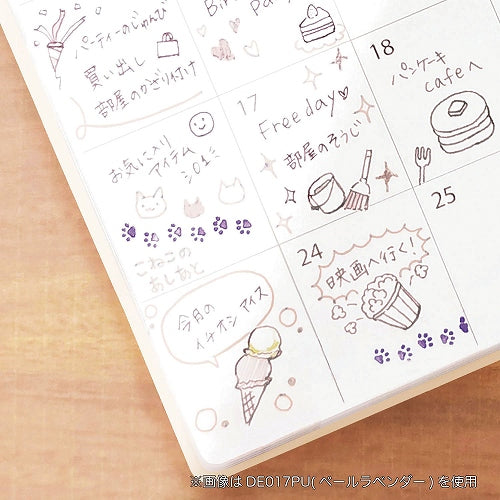 パーティーのじゅんび
買い出し
部屋のかざり付け
18
パンケーキ
cafeへ
17
Freeday
部屋のそうじ
お気に入り
アイテム
こねこの
あしあと
24
映画へ行く!
25
今月の
イチオシ アイス
※画像は DE017PU( ペールラベンダー ) を使用